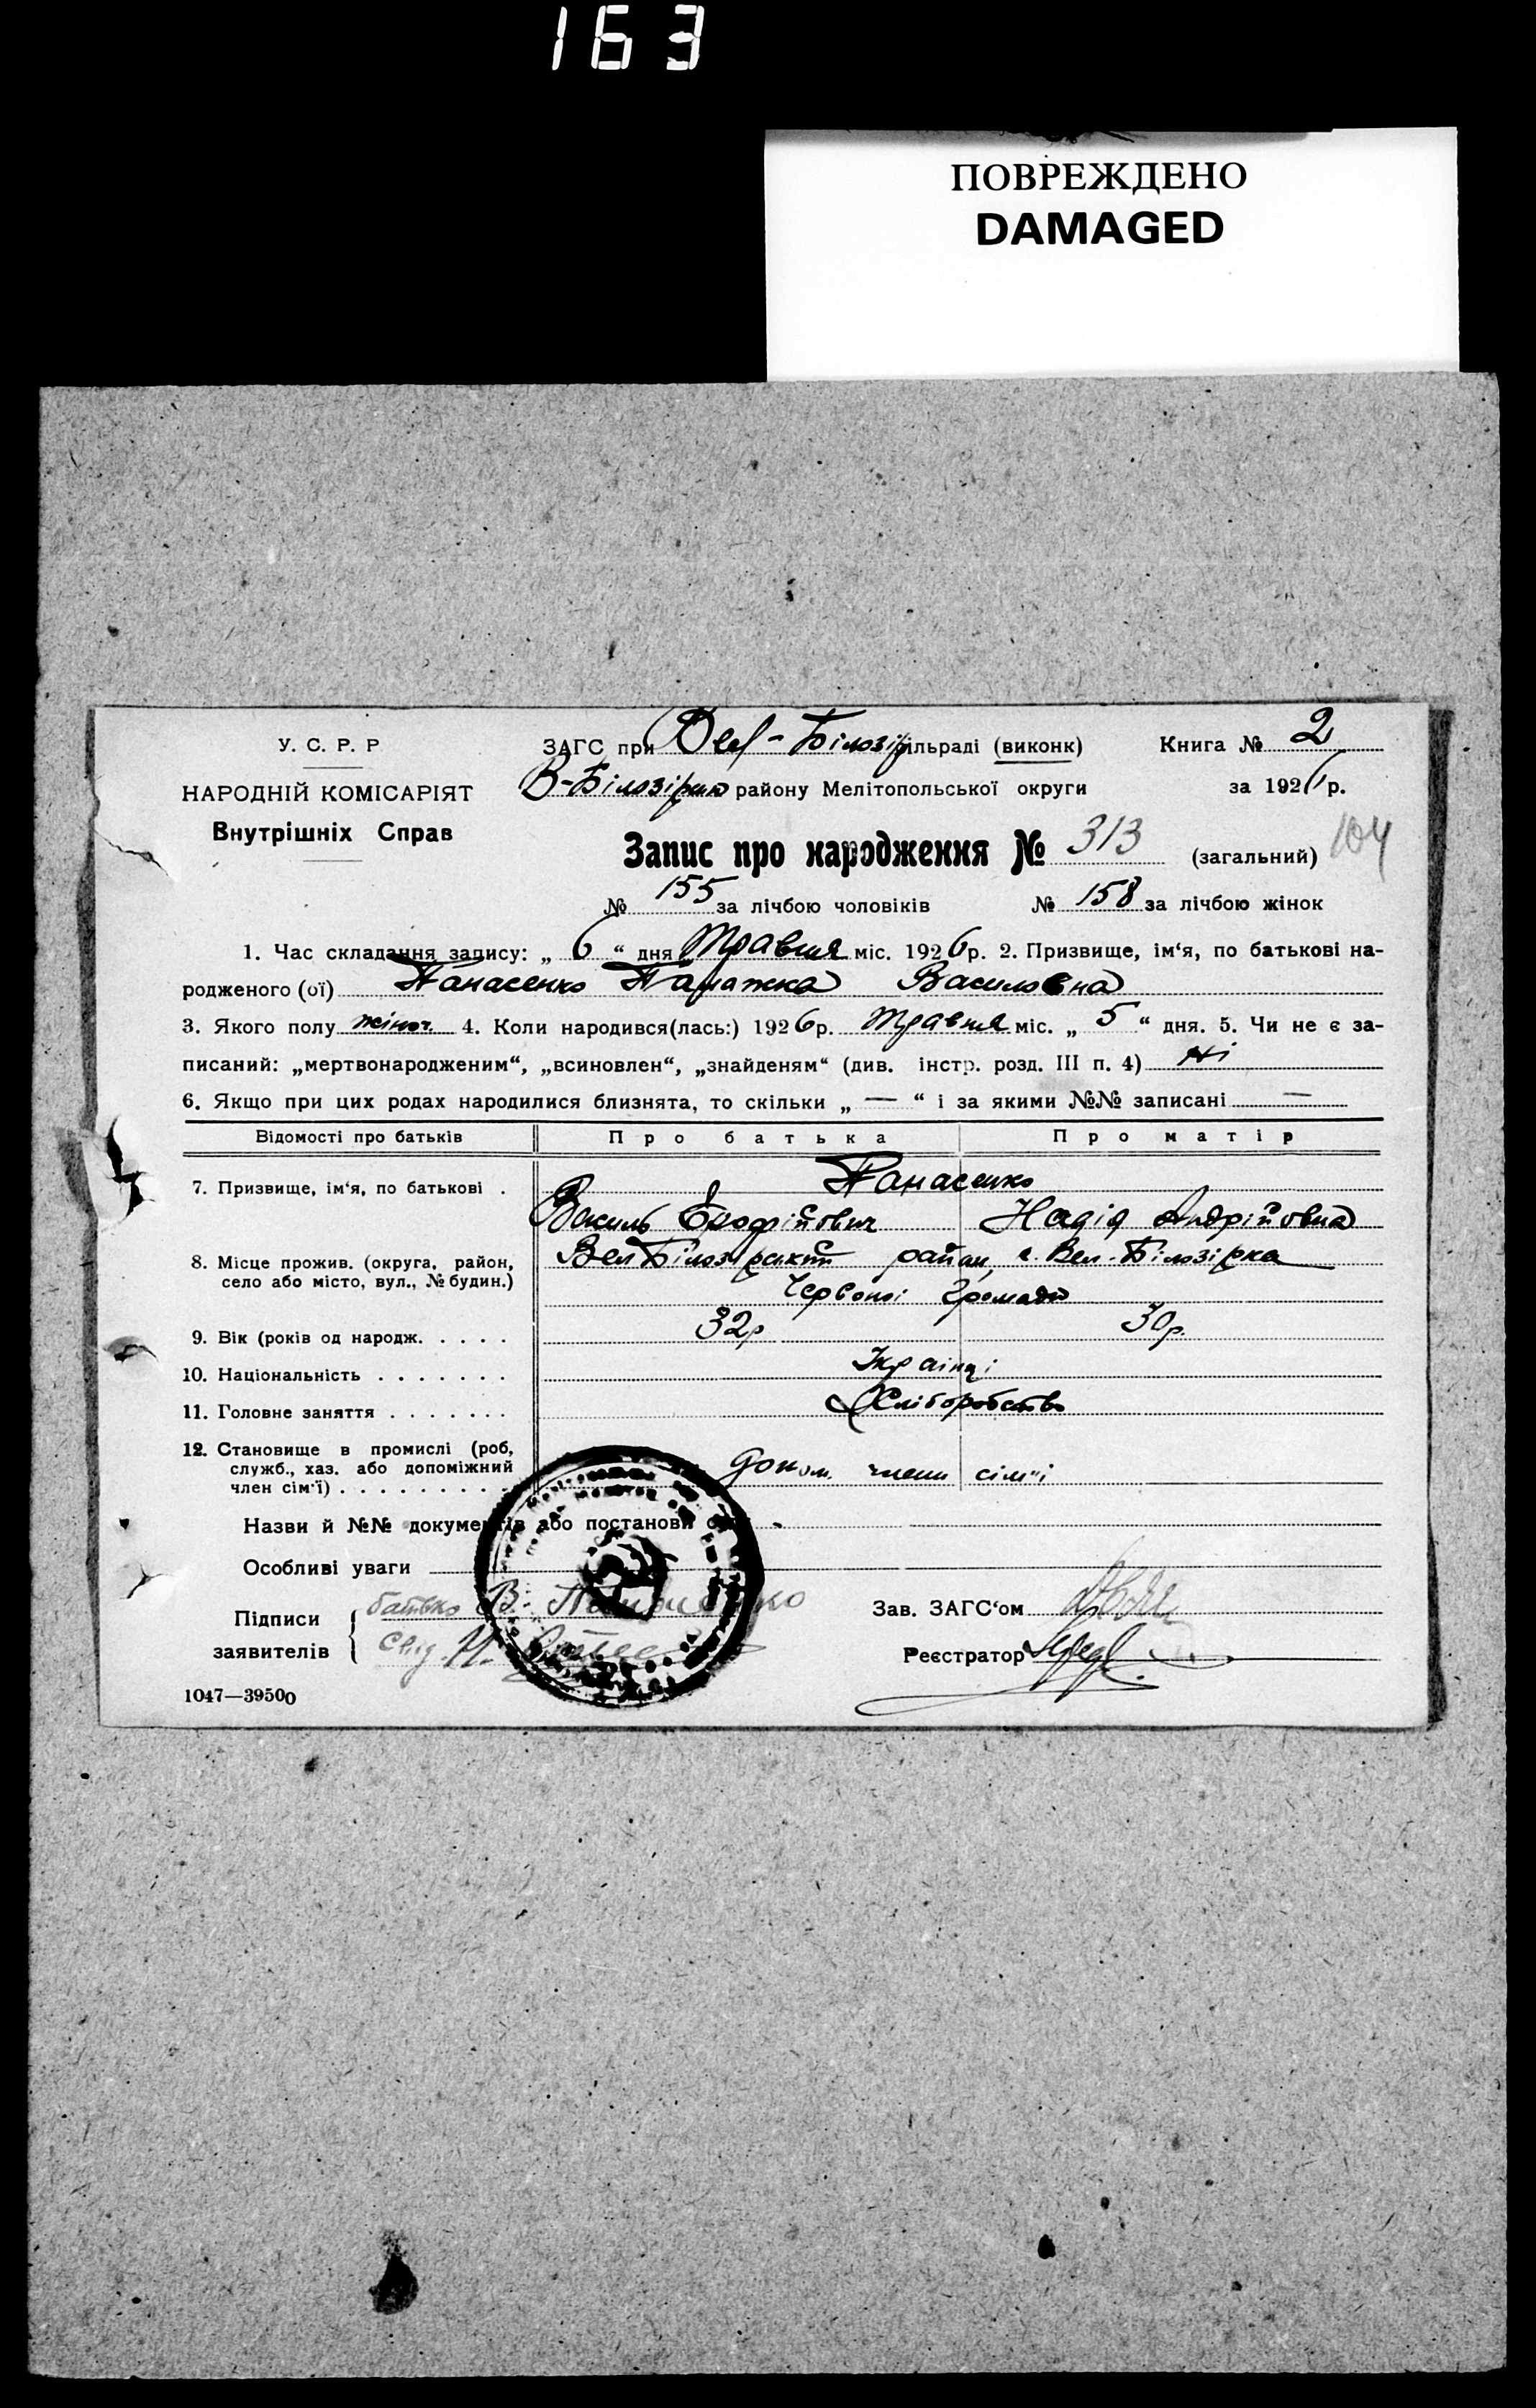 163
ПОВРЕЖДЕНО
DAMAGED
У. С. Р. Р
НАРОДНІЙ КОМІСАРІЯТ
Внутрішніх Справ
ЗАГС при Вел-Білозір ільраді (виконк)
В-Білозірськ району Мелітопольської округи
Книга № 2
за 1926 р.
Запис про народження № 313 (загальний) 104
№ 155 за лічбою чоловіків № 158 за лічбою жінок
1. Час складання запису: „ 6 “ дня Травня міс. 1926 р. 2. Призвище, ім‘я, по батькові на-
родженого (ої) Панасенко Параска Василовна
3. Якого полу жіноч. 4. Коли народився(лась:) 1926 р. Травня міс. „ 5 “ дня. 5. Чи не є за-
писаний: „мертвонародженим“, „всиновлен“, „знайденям“ (див. інстр. розд. III п. 4) Ні
6. Якщо при цих родах народилися близнята, то скільки „ — “ і за якими №№ записані —
Відомості про батьків Про батька Про матір
Панасенко
7. Призвище, ім‘я, по батькові .
Василь Єрофійович Надія Андрійовна
8. Місце прожив. (округа, район,
село або місто, вул., № будин.)
Вел Білозірський район, с. Вел-Білозірка
Червоної Громади
9. Вік (років од народж. . . . . 32р 30р.
10. Національність . . . . . . . Українці
11. Головне заняття . . . . . . . Хліборобство
12. Становище в промислі (роб,
служб., хаз. або допоміжний
член сім‘ї) . . . . . . . . . допом. члени сім'ї
Назви й №№ документів або постанови
Особливі уваги
Підписи
заявителів
батько В. Панасенко
свід. Н.
Зав. ЗАГС‘ом
Реєстратор
1047—39500